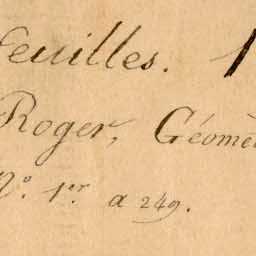 feuilles. 1
Roger, Géomè
N.º 1.er a 249.